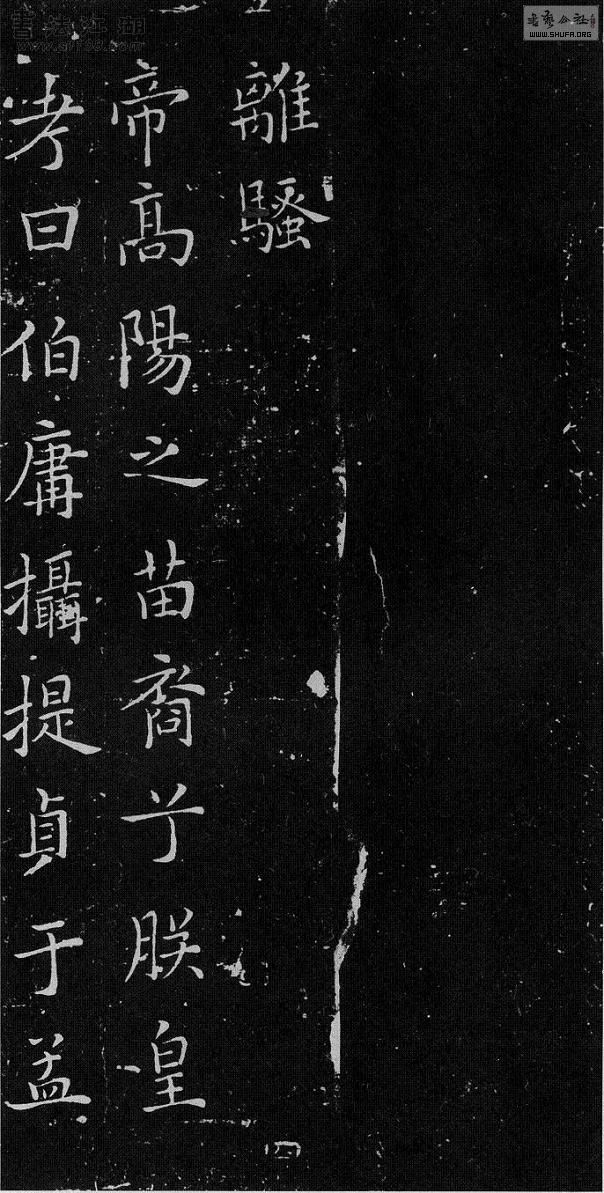 離騷
帝髙陽之苗裔兮朕皇
考曰伯庸攝提貞于孟
四
書法江湖
書藝公社
WWW.SHUFA.ORG